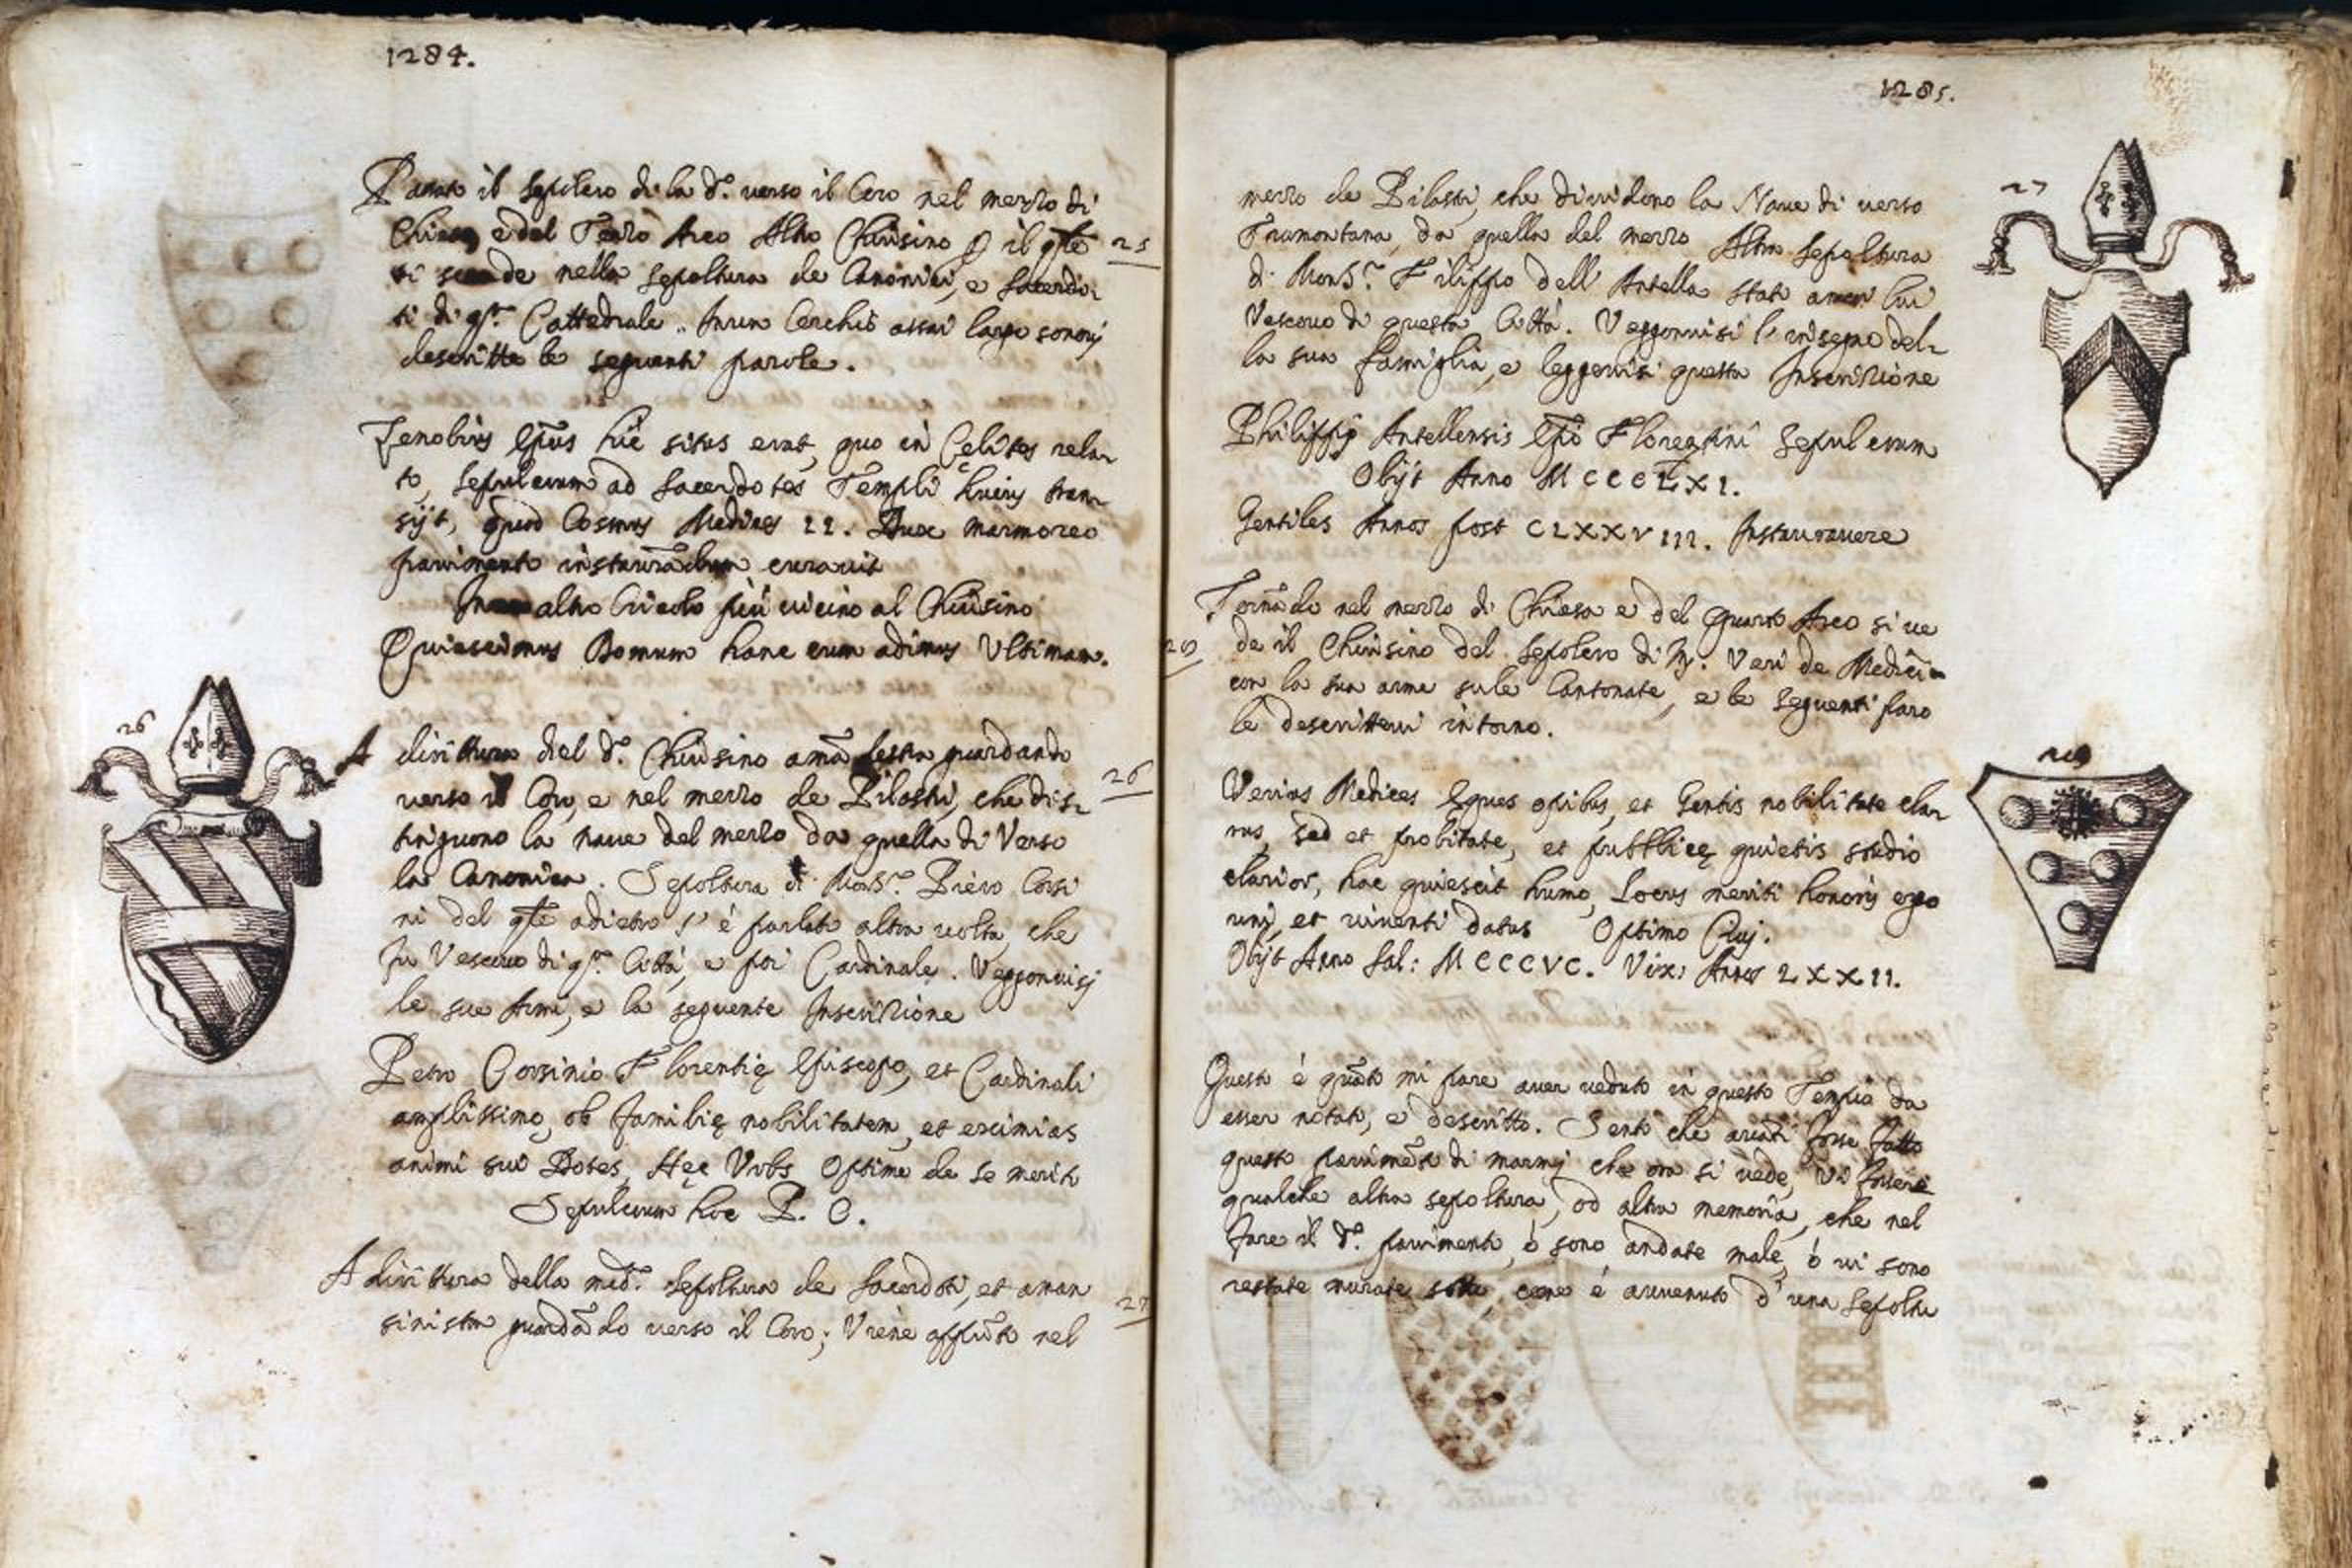 1284.
Passato il Sepolcro di la d.ª verso il Coro nel mezzo di
Chiesa e del Terzo Arco Altro Chiusino p il qlē
si scende nella Sepoltura de Canonici, e Sacerdo-
ti di qst.ª Cattedrale. In un Cerchio assai largo sonovi
descritte le seguenti parole.
25
Zenobius Ep̄us hic situs erat, quo in Cęlites rela-
to, Sepulcrum ad Sacerdotes Templi huius tran-
sijt, quod Cosmus Medices II. Dux marmoreo
pavimento instaurādum curavit
In altro Circolo più vicino al Chiusino
Quiescimus Domum hanc cum adimus Ultimam.
26
A dirittura del d.º Chiusino amā destra guardando
verso il Coro, e nel mezzo de Pilastri, che dis-
tinguono la nave del mezzo da quella di Verso
la Canonica. Sepoltura di Mons.r Piero Corsi
ni del qlē adietro s'è parlato altra volta, che
fu Vescovo di qst.ª Città, e poi Cardinale. Veggonvisi
le sue Armi, e la seguente Inscrizione
26
Petro Corsinio Florentię Episcopo, et Cardinali
amplissimo, ob familię nobilitatem, et eximias
animi sui Dotes, Hęc Vrbs Optime de se merito
Sepulcrum hoc P. C.
A dirittura della med.ª Sepoltura de Sacerdoti, et aman
sinistra guardādo verso il Coro; Viene appūto nel
27
1285.
mezzo de Pilastri, che dividono la Nave di verso
Tramontana, da quella del mezzo Altra Sepoltura
di Mons.r Filippo dell Antella stato ancor lui
Vescovo di questa Città. Veggonvisi l'insegne del-
la sua famiglia, e leggevisi questa Inscrizione
27
Philippi Antellensis Ep̄i Florentini Sepulcrum
Obijt Anno MCCCLXI.
Gentiles Annos post CLXXVIII. Instauravere
Tornādo nel mezzo di Chiesa e del quarto Arco si ve
de il Chiusino del Sepolcro di M. Veri de Medici
con la sua arme sule Cantonate, e le seguenti paro
le descrittevi intorno.
Verius Medices Eques opibus, et Gentis nobilitate cla-
rus, sed et probitate, et pubblicę quietis studio
clarior, hac quiescit humo, Locus meriti honoris ergo
uni, et viventi datus Optimo Civi.
Obijt Anno Sal: MCCCVC. Vix: Annos LXXII.
Questo è quāto mi pare aver veduto in questo Tempio da
esser notato, e descritto. Sento che avāti fosse fatto
questo pavimēto di marmi che ora si vede, Vi fossero
qualche altra sepoltura, od altra memoria, che nel
fare il d.º pavimento, ò sono andate male, ò vi sono
restate murate sotto, come è avvenuto d'una Sepoltu